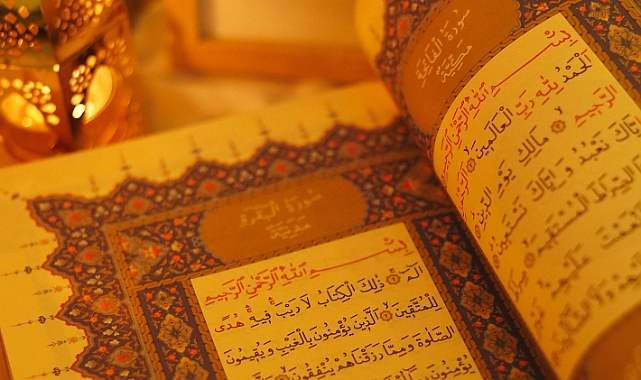 سُورَةُ الْفَاتِحَةِ
مَكِّيَّة
بِسْمِ اللّٰهِ الرَّحْمٰنِ الرَّحِيمِ
اَلْحَمْدُ لِلّٰهِ رَبِّ الْعَالَمِينَ
الرَّحِيمِ مَالِكِ يَوْمِ الدِّينِ
نَعْبُدُ وَاِيَّاكَ نَسْتَعِينُ
الصِّرَاطَ الْمُسْتَقِيمَ
عَلَيْهِمْ
وَلَا
سُورَةُ الْبَقَرَةِ
مَدَنِيَّة
بِسْمِ اللّٰهِ الرَّحْمٰنِ الرَّحِيمِ
الٓمٓ ذٰلِكَ الْكِتَابُ لَا رَيْبَ فِيهِ هُدًى
لِلْمُتَّقِينَ اَلَّذِينَ يُؤْمِنُونَ بِالْغَيْبِ وَيُقِيمُونَ
الصَّلٰوةَ وَمِمَّا رَزَقْنَاهُمْ يُنْفِقُونَ
يُؤْمِنُونَ